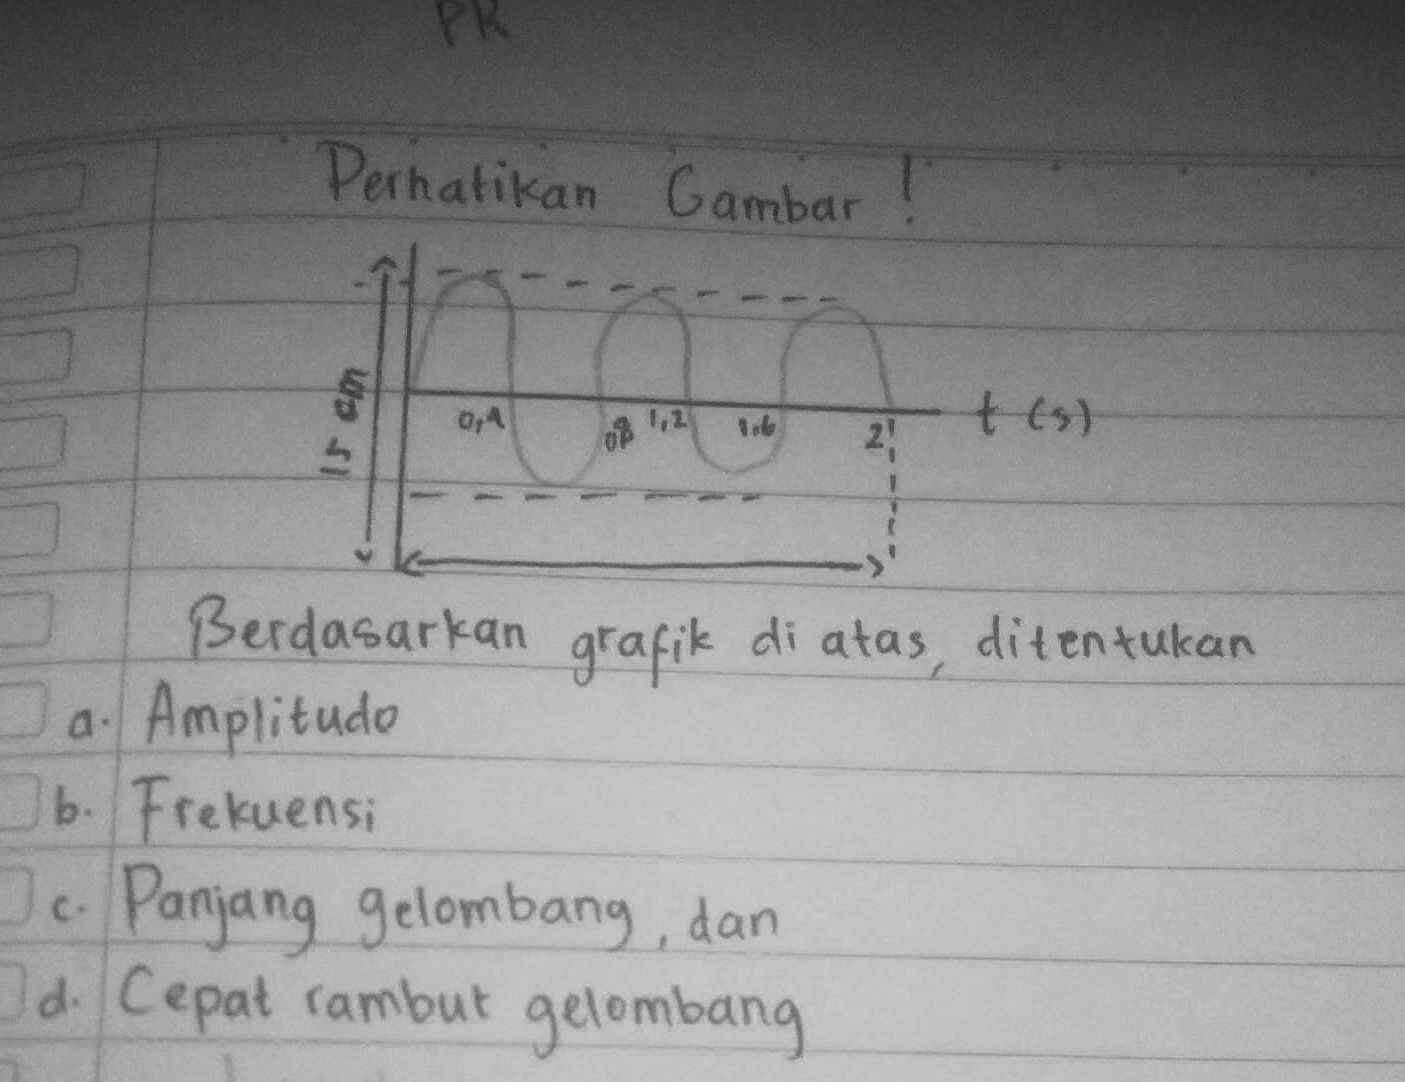 PR
Perhatikan Gambar !
15 cm
0,4 0,8 1,2 1.6 2 t (s)
Berdasarkan grafik di atas, ditentukan
a. Amplitudo
b. Frekuensi
c. Panjang gelombang, dan
d. Cepat rambut gelombang